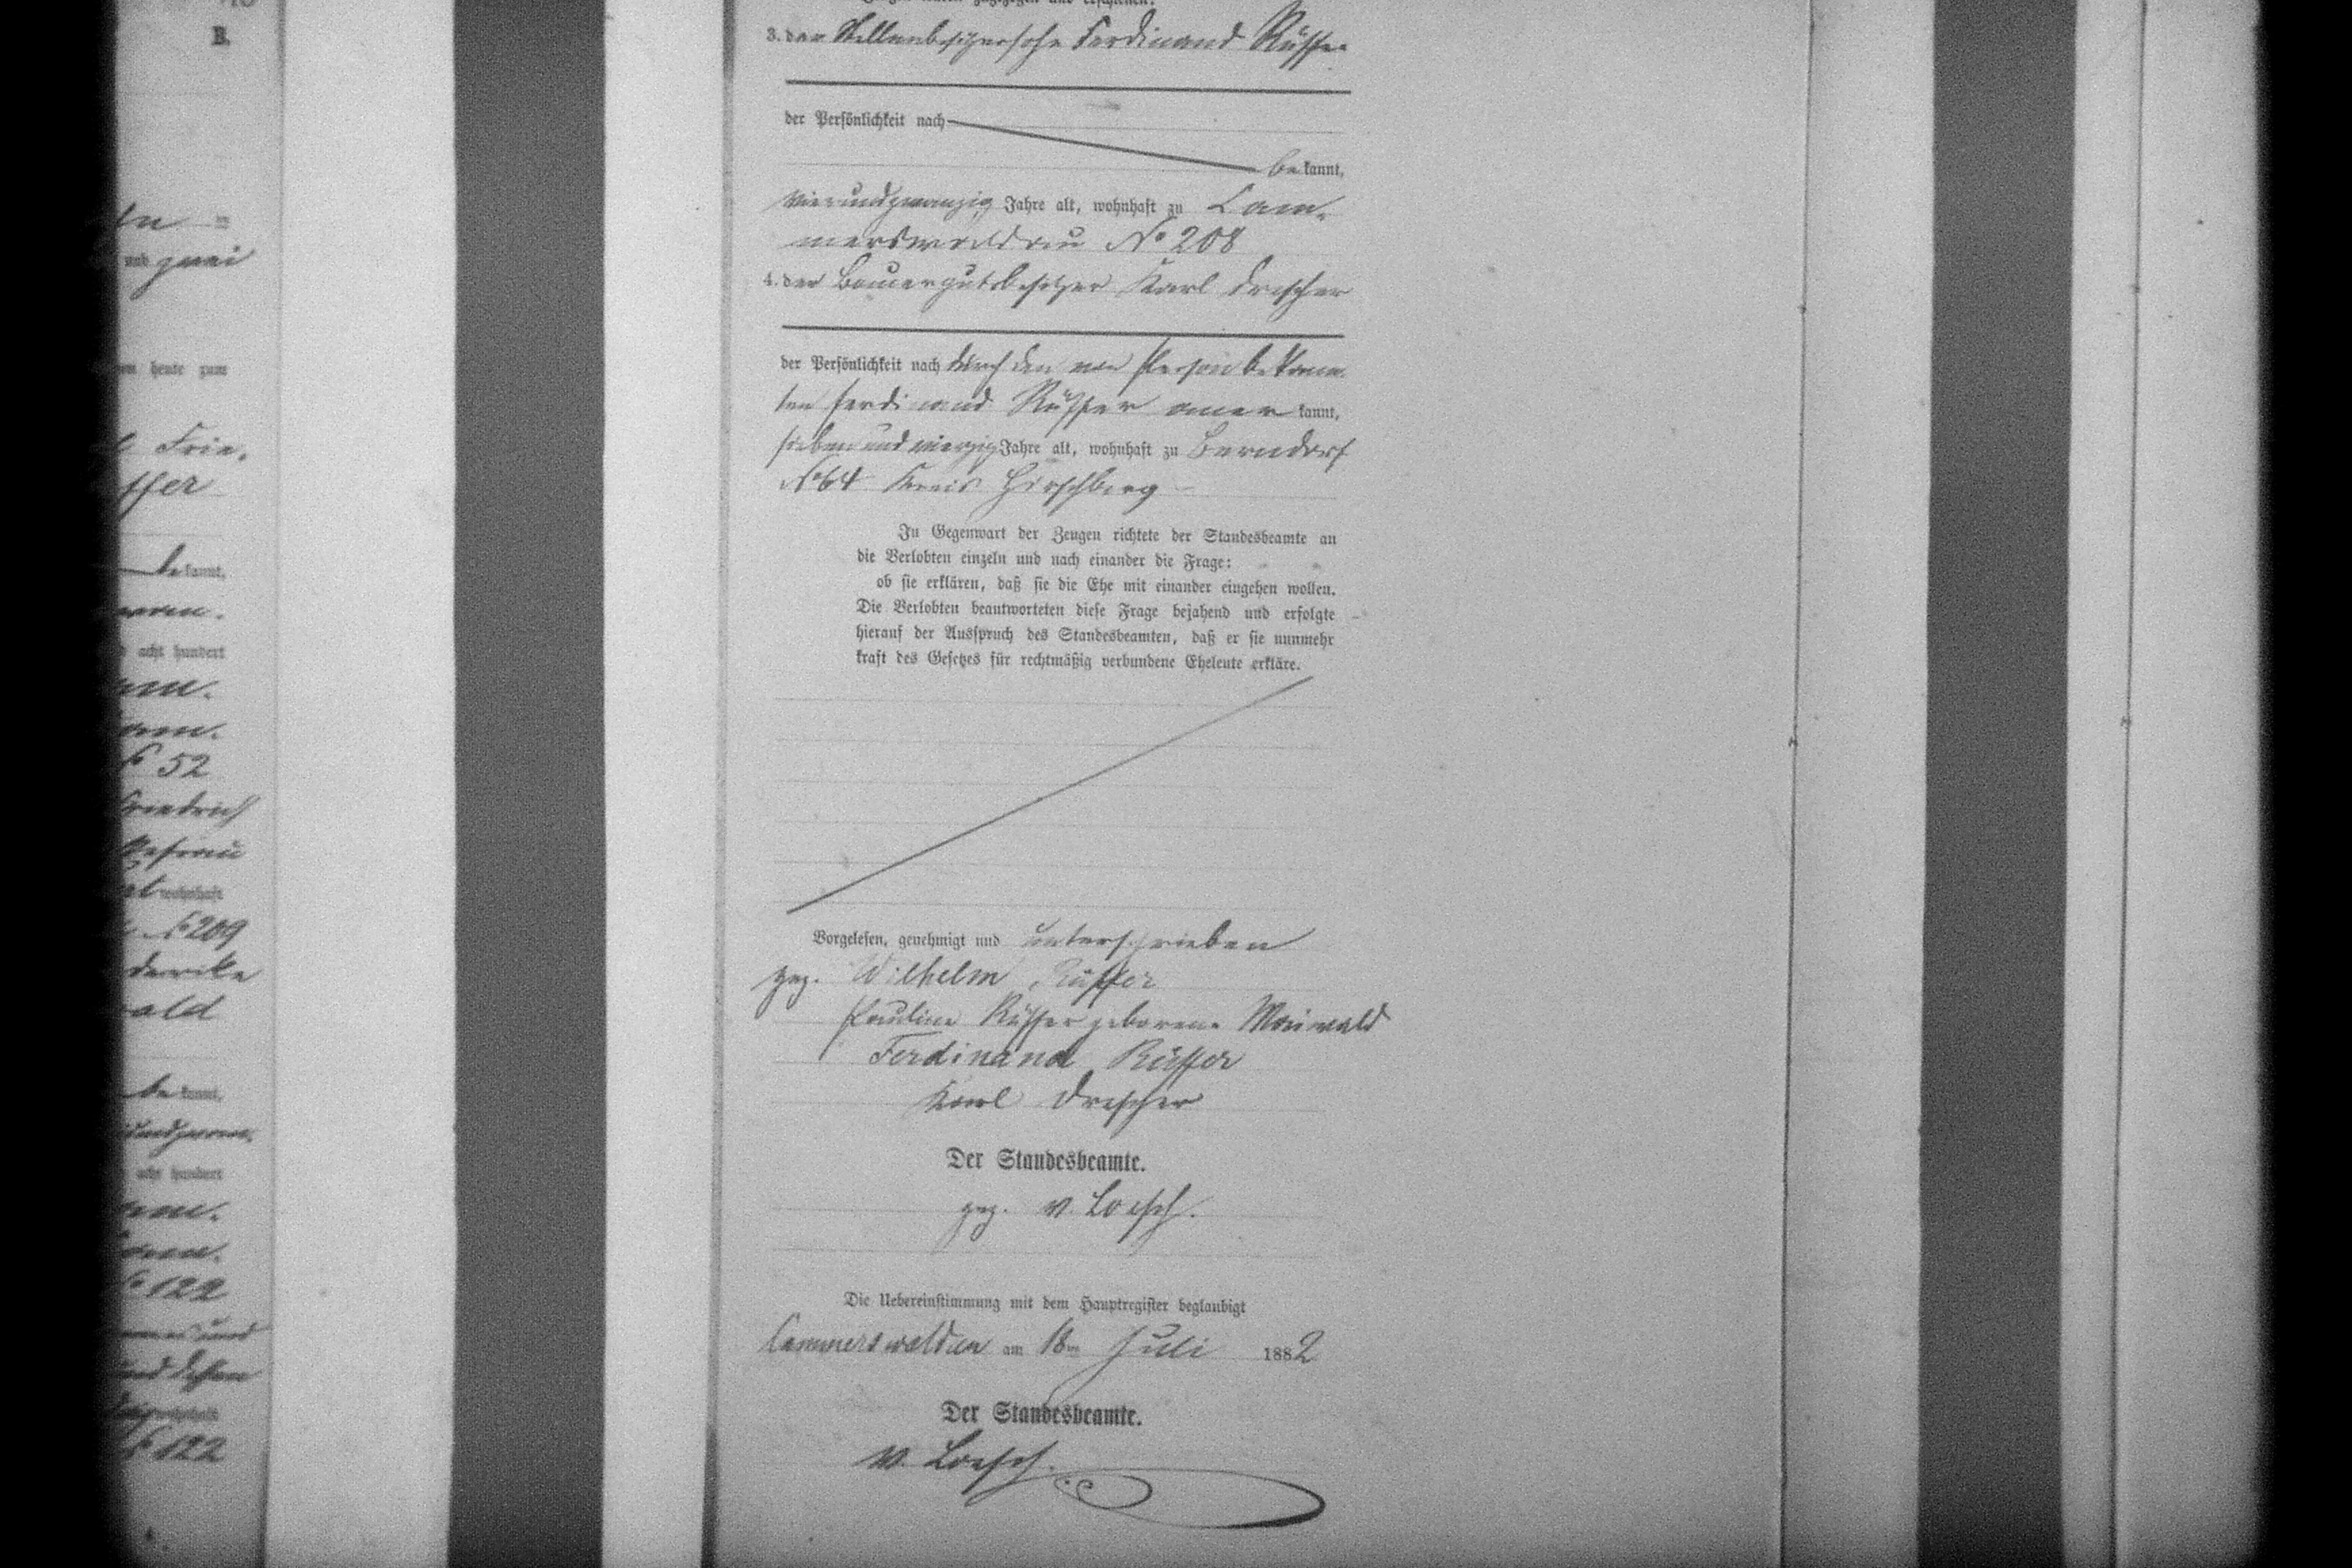 B.
und zwei
heute zum
Frie-
ffer
bekannt,
acht hundert
No 52
Friedrich
Ehefrau
wohnhaft
No 209
derike
ald
bekannt,
acht hundert
No 122
und dessen
No 122
3. der Stellenbesitzersohn Ferdinand Rüffer
der Persönlichkeit nach
bekannt,
vierundzwanzig Jahre alt, wohnhaft zu Cam-
merswaldau No 208
4. der Bauergutsbesitzer Karl Drescher
der Persönlichkeit nach durch den von Person bekann-
ten Ferdinand Rüffer anerkannt,
sieben und vierzig Jahre alt, wohnhaft zu Berndorf
No 64 Kreis Hirschberg
In Gegenwart der Zeugen richtete der Standesbeamte an
die Verlobten einzeln und nach einander die Frage:
ob sie erklären, daß sie die Ehe mit einander eingehen wollen.
Die Verlobten beantworteten diese Frage bejahend und erfolgte
hierauf der Ausspruch des Standesbeamten, daß er sie nunmehr
kraft des Gesetzes für rechtmäßig verbundene Eheleute erkläre.
Vorgelesen, genehmigt und unterschrieben
gez. Wilhelm Rüffer
Pauline Rüffer geborene Maiwald
Ferdinand Rüffer
Karl Drescher
Der Standesbeamte.
gez. v. Loesch.
Die Uebereinstimmung mit dem Hauptregister beglaubigt
Cammerswaldau am 18ten Juli 1882
Der Standesbeamte.
v. Loesch.